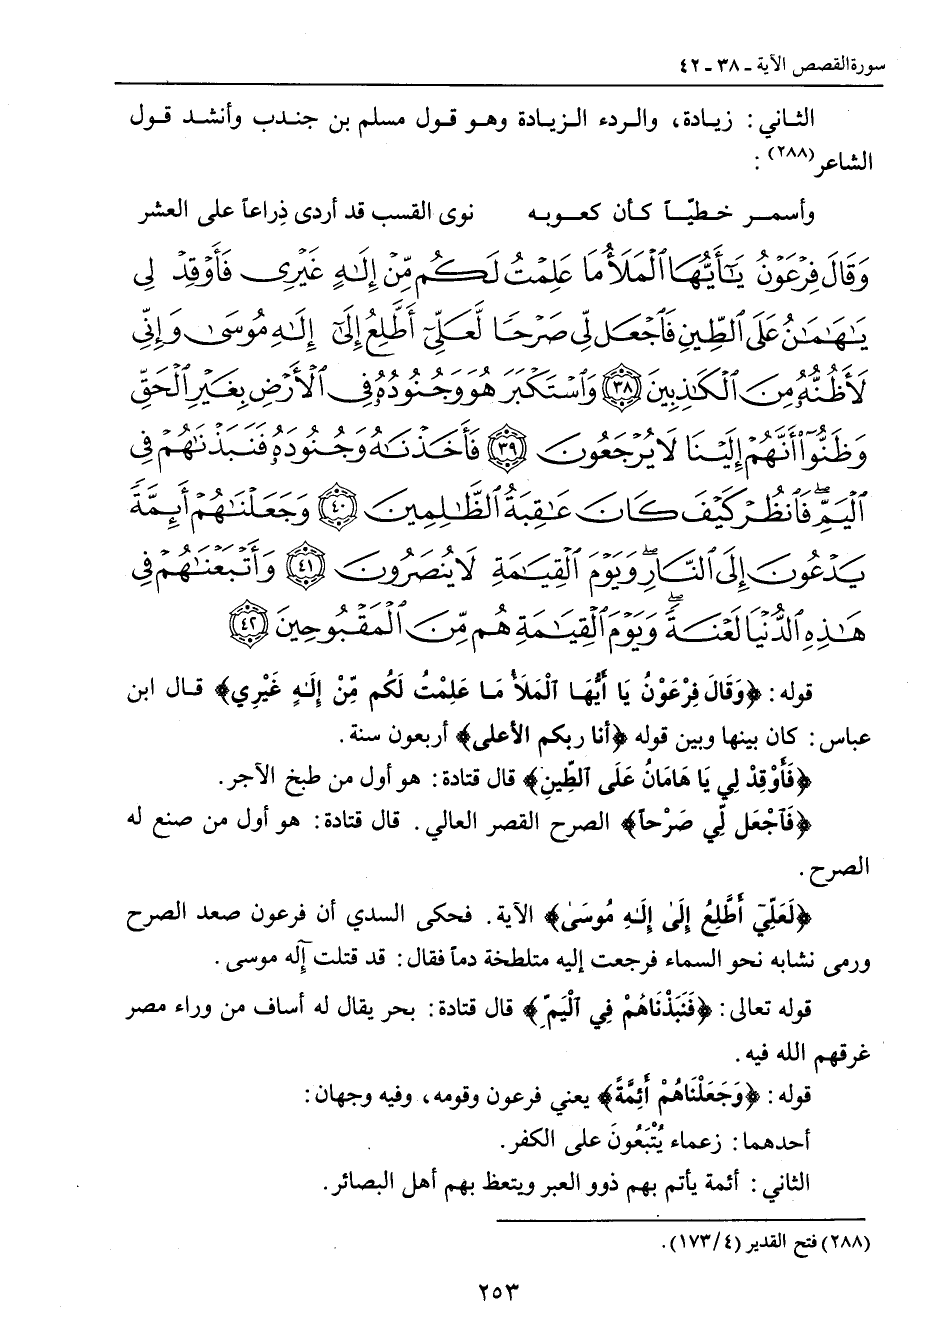 سورة القصص الآية ـ ٣٨ ـ ٤٢
الثاني: زيادة، والردء الزيادة وهو قول مسلم بن جندب وأنشد قول
الشاعر(٢٨٨):
وأسمر خطيّاً كأن كعوبه نوى القسب قد أردى ذِراعاً على العشر
وَقَالَ فِرْعَوْنُ يَٰٓأَيُّهَا ٱلْمَلَأُ مَا عَلِمْتُ لَكُم مِّنْ إِلَٰهٍ غَيْرِى فَأَوْقِدْ لِى
يَٰهَٰمَٰنُ عَلَى ٱلطِّينِ فَٱجْعَل لِّى صَرْحًا لَّعَلِّىٓ أَطَّلِعُ إِلَىٰٓ إِلَٰهِ مُوسَىٰ وَإِنِّى
لَأَظُنُّهُۥ مِنَ ٱلْكَٰذِبِينَ ٣٨ وَٱسْتَكْبَرَ هُوَ وَجُنُودُهُۥ فِى ٱلْأَرْضِ بِغَيْرِ ٱلْحَقِّ
وَظَنُّوٓا۟ أَنَّهُمْ إِلَيْنَا لَا يُرْجَعُونَ ٣٩ فَأَخَذْنَٰهُ وَجُنُودَهُۥ فَنَبَذْنَٰهُمْ فِى
ٱلْيَمِّ ۖ فَٱنظُرْ كَيْفَ كَانَ عَٰقِبَةُ ٱلظَّٰلِمِينَ ٤٠ وَجَعَلْنَٰهُمْ أَئِمَّةً
يَدْعُونَ إِلَى ٱلنَّارِ ۖ وَيَوْمَ ٱلْقِيَٰمَةِ لَا يُنصَرُونَ ٤١ وَأَتْبَعْنَٰهُمْ فِى
هَٰذِهِ ٱلدُّنْيَا لَعْنَةً ۖ وَيَوْمَ ٱلْقِيَٰمَةِ هُم مِّنَ ٱلْمَقْبُوحِينَ ٤٢
قوله: ﴿وَقَالَ فِرْعَوْنُ يَا أَيُّهَا ٱلْمَلَأُ مَا عَلِمْتُ لَكُم مِّنْ إِلَـٰهٍ غَيْرِي﴾ قال ابن
عباس: كان بينها وبين قوله ﴿أنا ربكم الأعلى﴾ أربعون سنة.
﴿فَأَوْقِدْ لِي يَا هَامَانُ عَلَى ٱلطِّينِ﴾ قال قتادة: هو أول من طبخ الآجر.
﴿فَٱجْعَل لِّي صَرْحاً﴾ الصرح القصر العالي. قال قتادة: هو أول من صنع له
الصرح.
﴿لَعَلِّيٓ أَطَّلِعُ إِلَىٰ إِلَـٰهِ مُوسَىٰ﴾ الآية. فحكى السدي أن فرعون صعد الصرح
ورمى نشابه نحو السماء فرجعت إليه متلطخة دماً فقال: قد قتلت إلٓه موسى.
قوله تعالى: ﴿فَنَبَذْنَاهُمْ فِي ٱلْيَمِّ﴾ قال قتادة: بحر يقال له أساف من وراء مصر
غرقهم الله فيه.
قوله: ﴿وَجَعَلْنَاهُمْ أَئِمَّةً﴾ يعني فرعون وقومه، وفيه وجهان:
أحدهما: زعماء يُتْبَعُونَ على الكفر.
الثاني: أئمة يأتم بهم ذوو العبر ويتعظ بهم أهل البصائر.
(٢٨٨) فتح القدير (٤/١٧٣).
٢٥٣